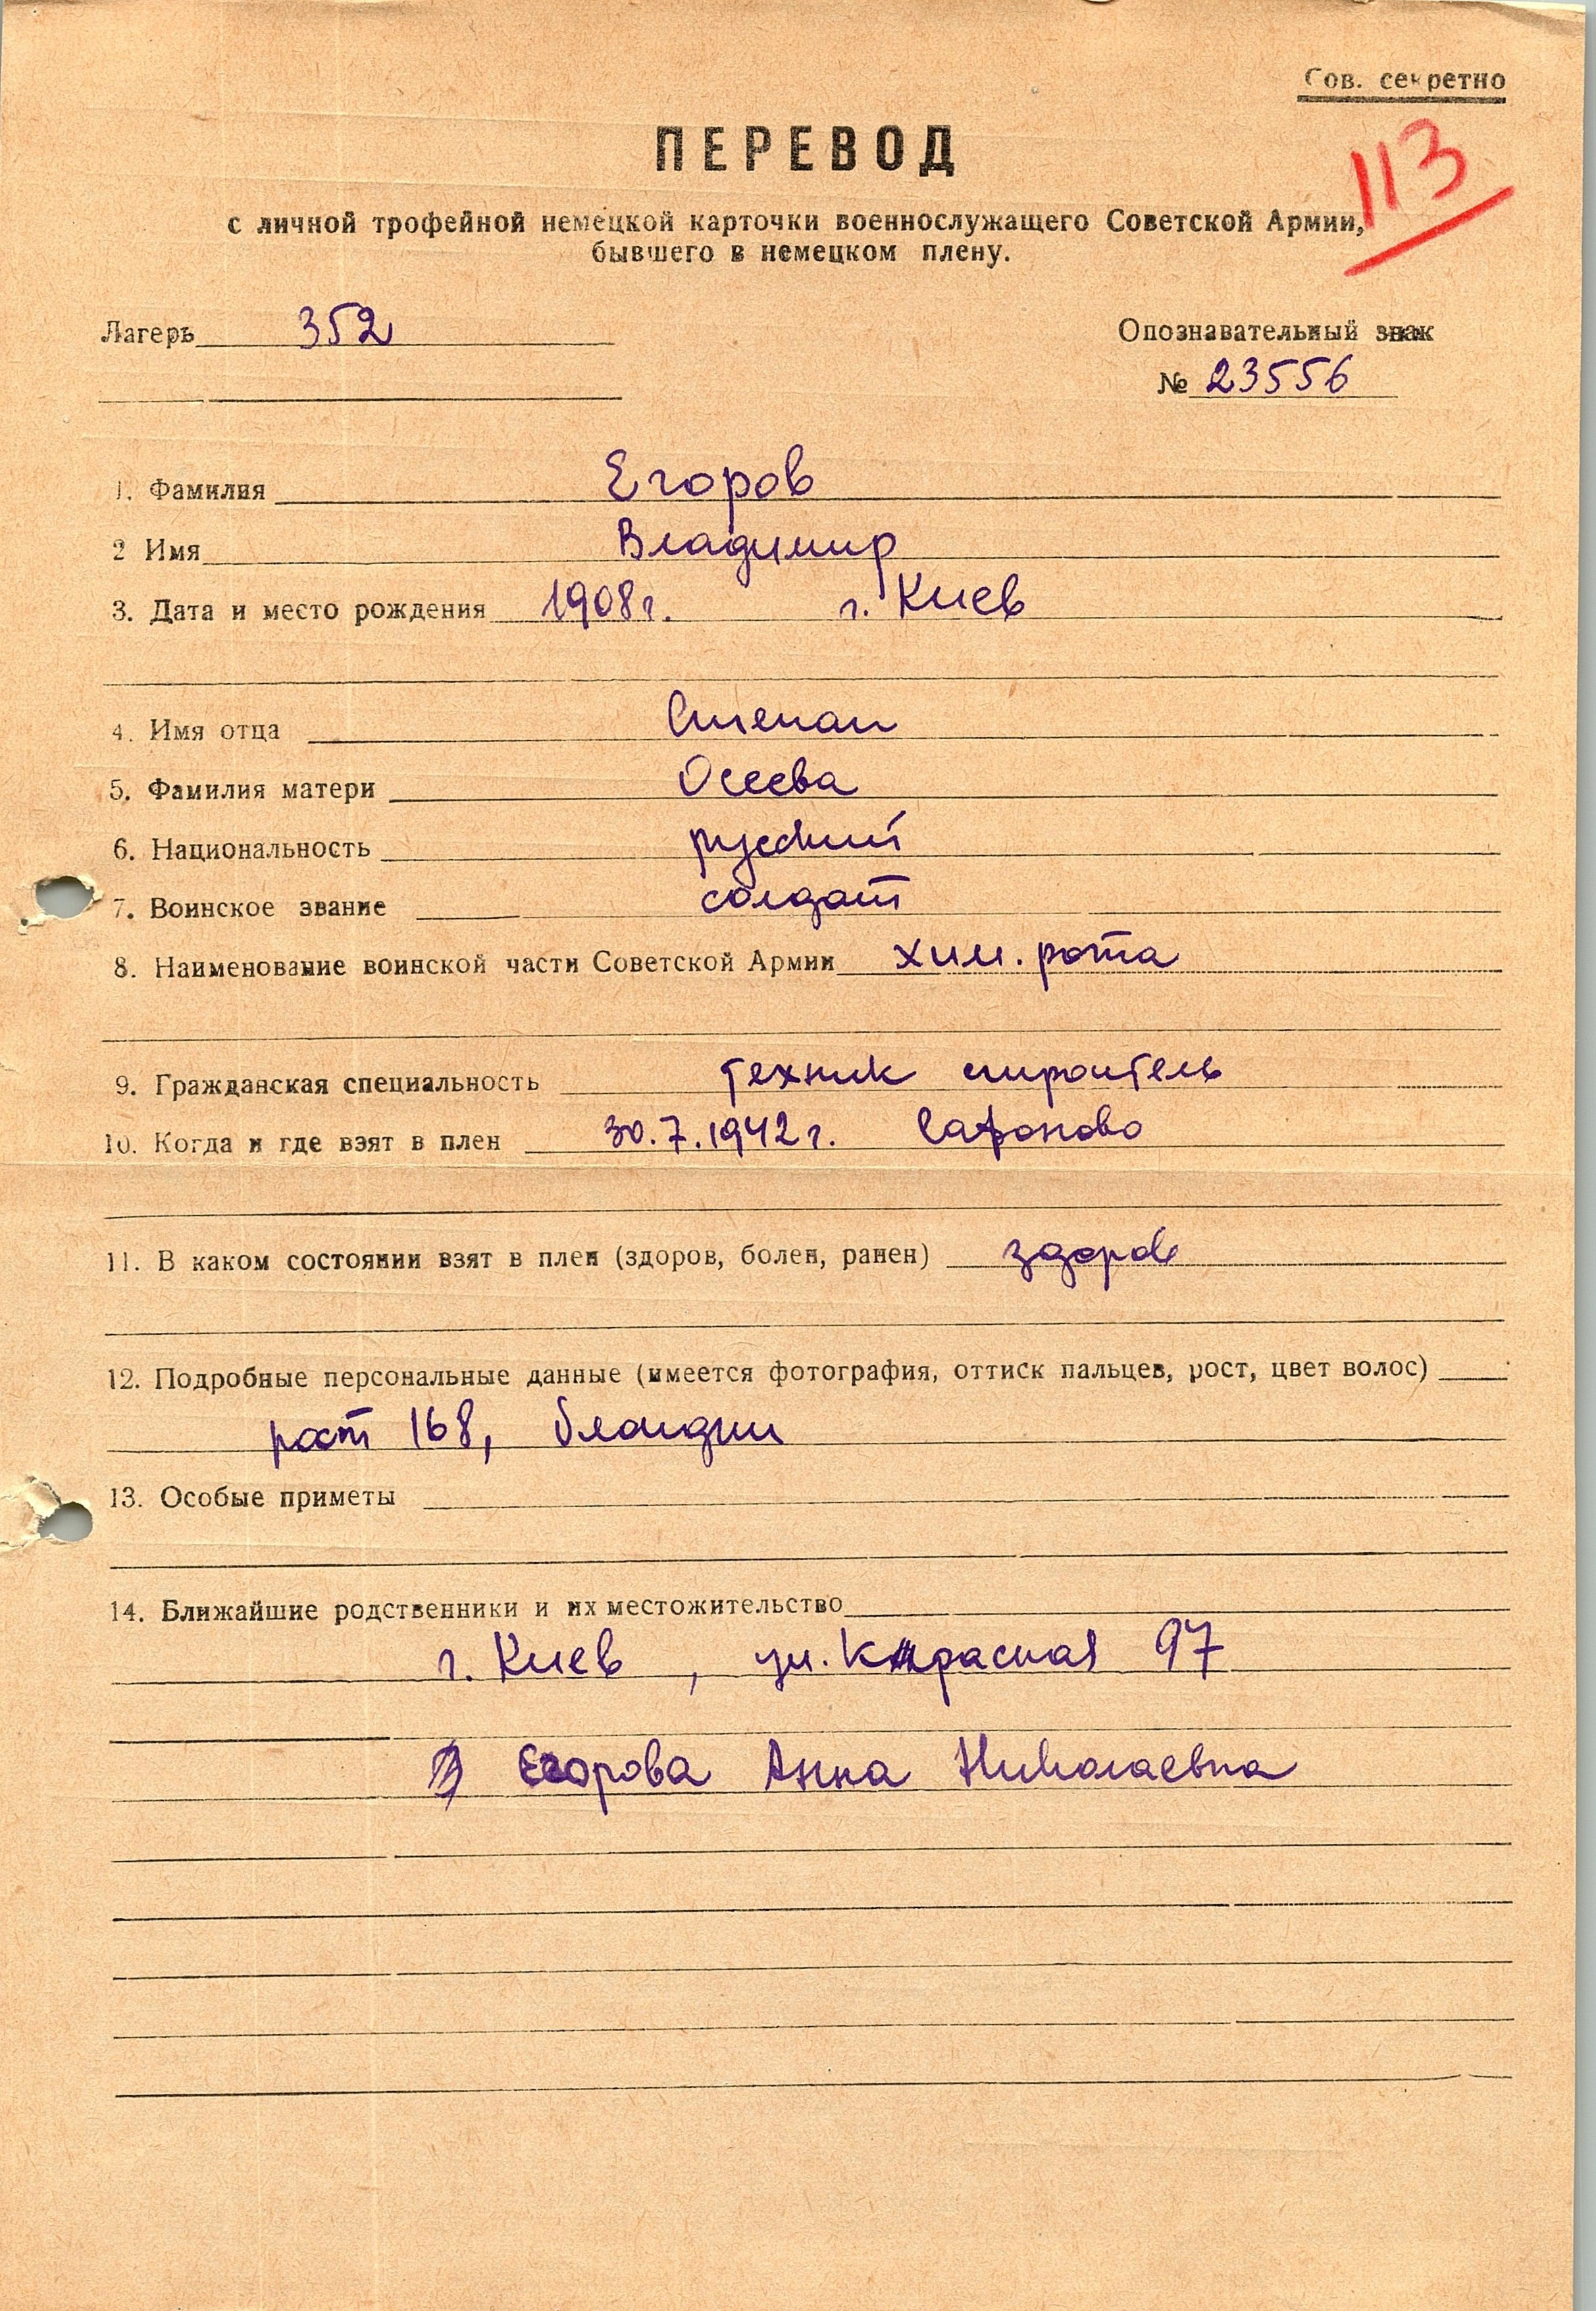 Сов. секретно
ПЕРЕВОД
113
с личной трофейной немецкой карточки военнослужащего Советской Армии,
бывшего в немецком плену.
Лагерь 352
Опознавательный знак
№ 23556
1. Фамилия Егоров
2 Имя Владимир
3. Дата и место рождения 1908г. г. Киев
4. Имя отца Степан
5. Фамилия матери Осеева
6. Национальность русский
7. Воинское звание солдат
8. Наименование воинской части Советской Армии хим. рота
9. Гражданская специальность техник строитель
10. Когда и где взят в плен 30.7.1942г. Сафоново
11. В каком состоянии взят в плен (здоров, болен, ранен) здоров
12. Подробные персональные данные (имеется фотография, оттиск пальцев, рост, цвет волос)
рост 168, блондин
13. Особые приметы
14. Ближайшие родственники и их местожительство
г. Киев, ул. Красная 97
Егорова Анна Николаевна